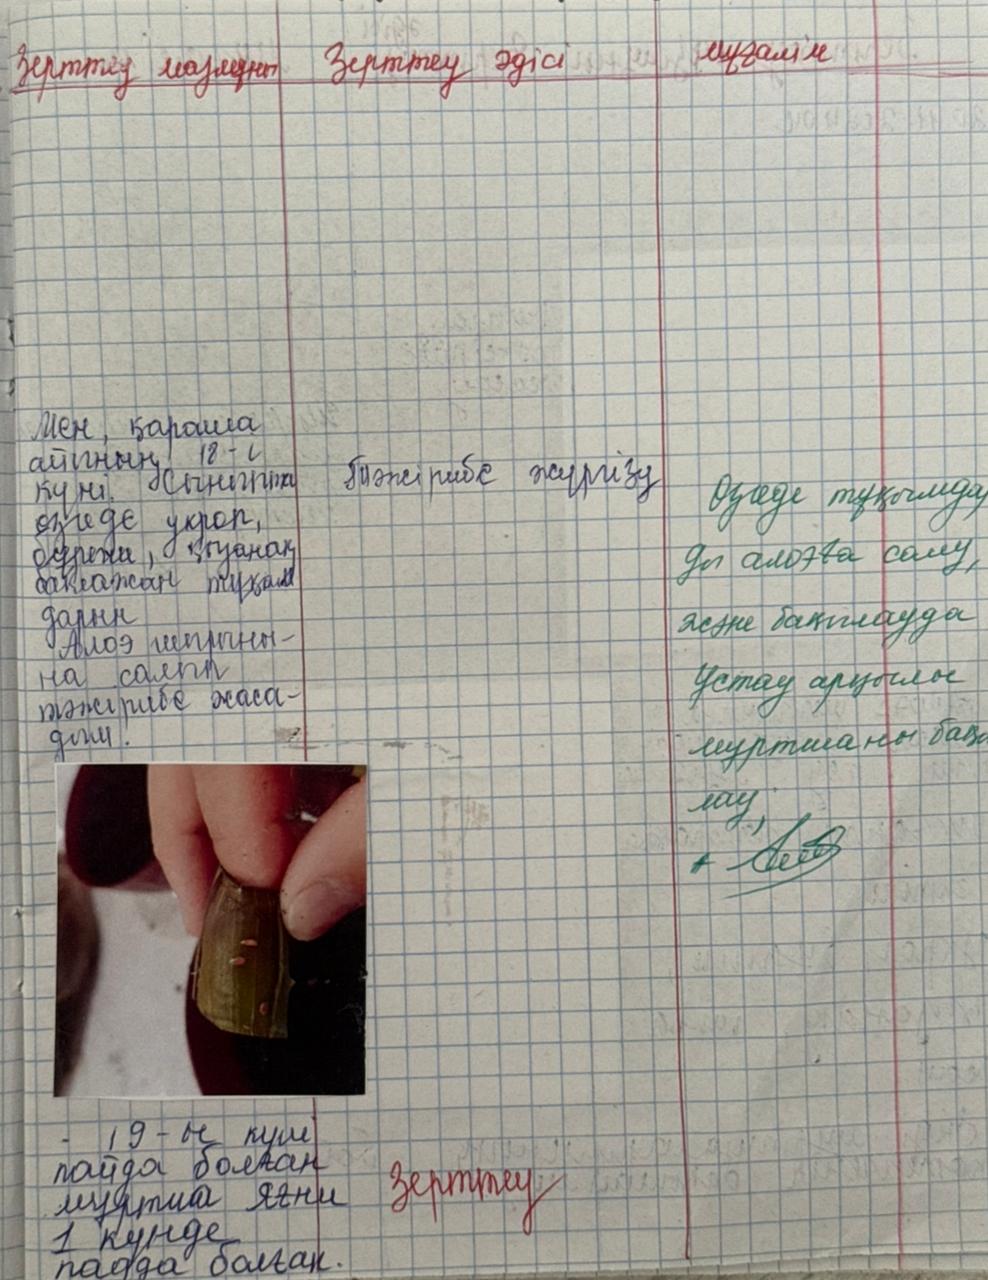 Зерттеу мазмұны
Зерттеу әдісі
мұғалім
Мен, қараша
айының 18-і
күні. Сыныпта
өзіме укроп,
бұрыш,
баклажан тұқым
дарын
Алоэ шырыны-
на салып
тәжірибе жаса-
дым.
тәжірибе жүргізу
Өзіңде тұқымдар
ды алоэға салу,
және бақылауда
Ұстау арқылы
муртшаны бақы
лау;
- 19-ы күні
пайда болған
муртша яғни
1 күнде
пайда болған.
Зерттеу